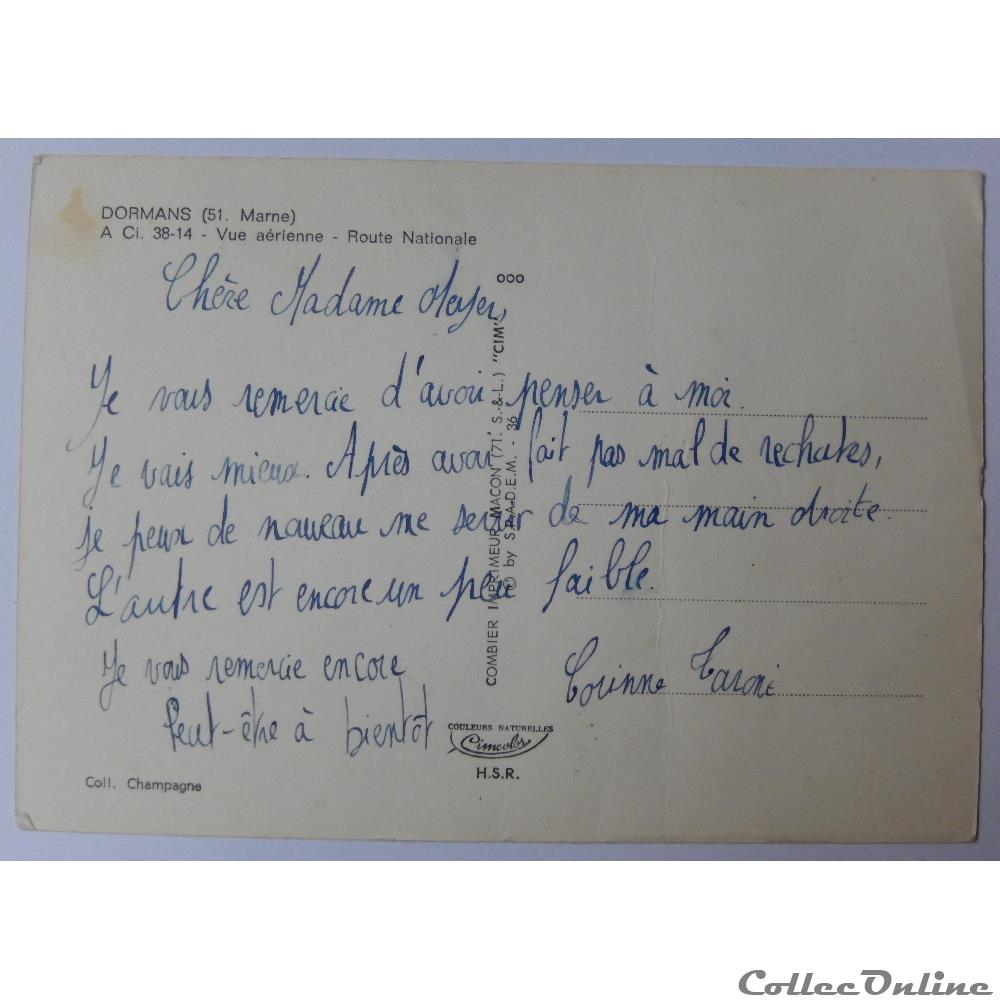 DORMANS (51. Marne)
A Ci. 38-14 - Vue aérienne - Route Nationale
Chère Madame Meyer,
Je vous remercie d'avoir penser à moi.
Je vais mieux. Après avoir fait pas mal de rechutes,
je peux de nouveau me servir de ma main droite.
L'autre est encore un peu faible.
Je vous remercie encore
Peut-être à bientôt
Corinne Taroni
ooo
COMBIER IMPRIMEUR MACON (71. S.-&-L.) "CIM"
© by S.P.A.D.E.M. - 36
COULEURS NATURELLES
Cimcolor
H.S.R.
Coll. Champagne
CollecOnline